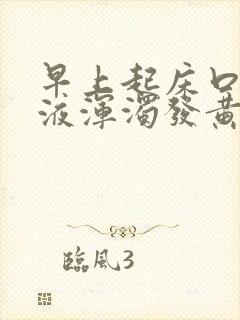 早上起床口
液渾濁發黃
臨風3